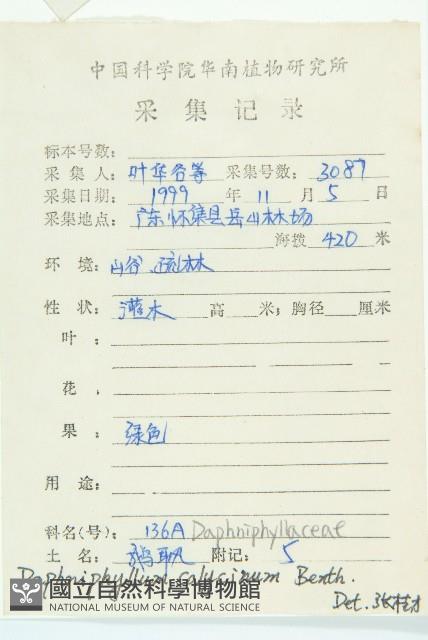 中国科学院华南植物研究所
采集记录
标本号数:
采集人: 叶华谷等 采集号数: 3087
采集日期: 1999 年 11 月 5 日
采集地点: 广东怀集县岳山林场
海拨 420 米
环境: 山谷 疏林
性状: 灌木 高 米; 胸径 厘米
叶:
花.
果: 绿色
用途:
科名(号): 136A Daphniphyllaceae
土名: 附记: 5
Daphniphyllum calycinum Benth.
Det. 张桂才
國立自然科學博物館
NATIONAL MUSEUM OF NATURAL SCIENCE